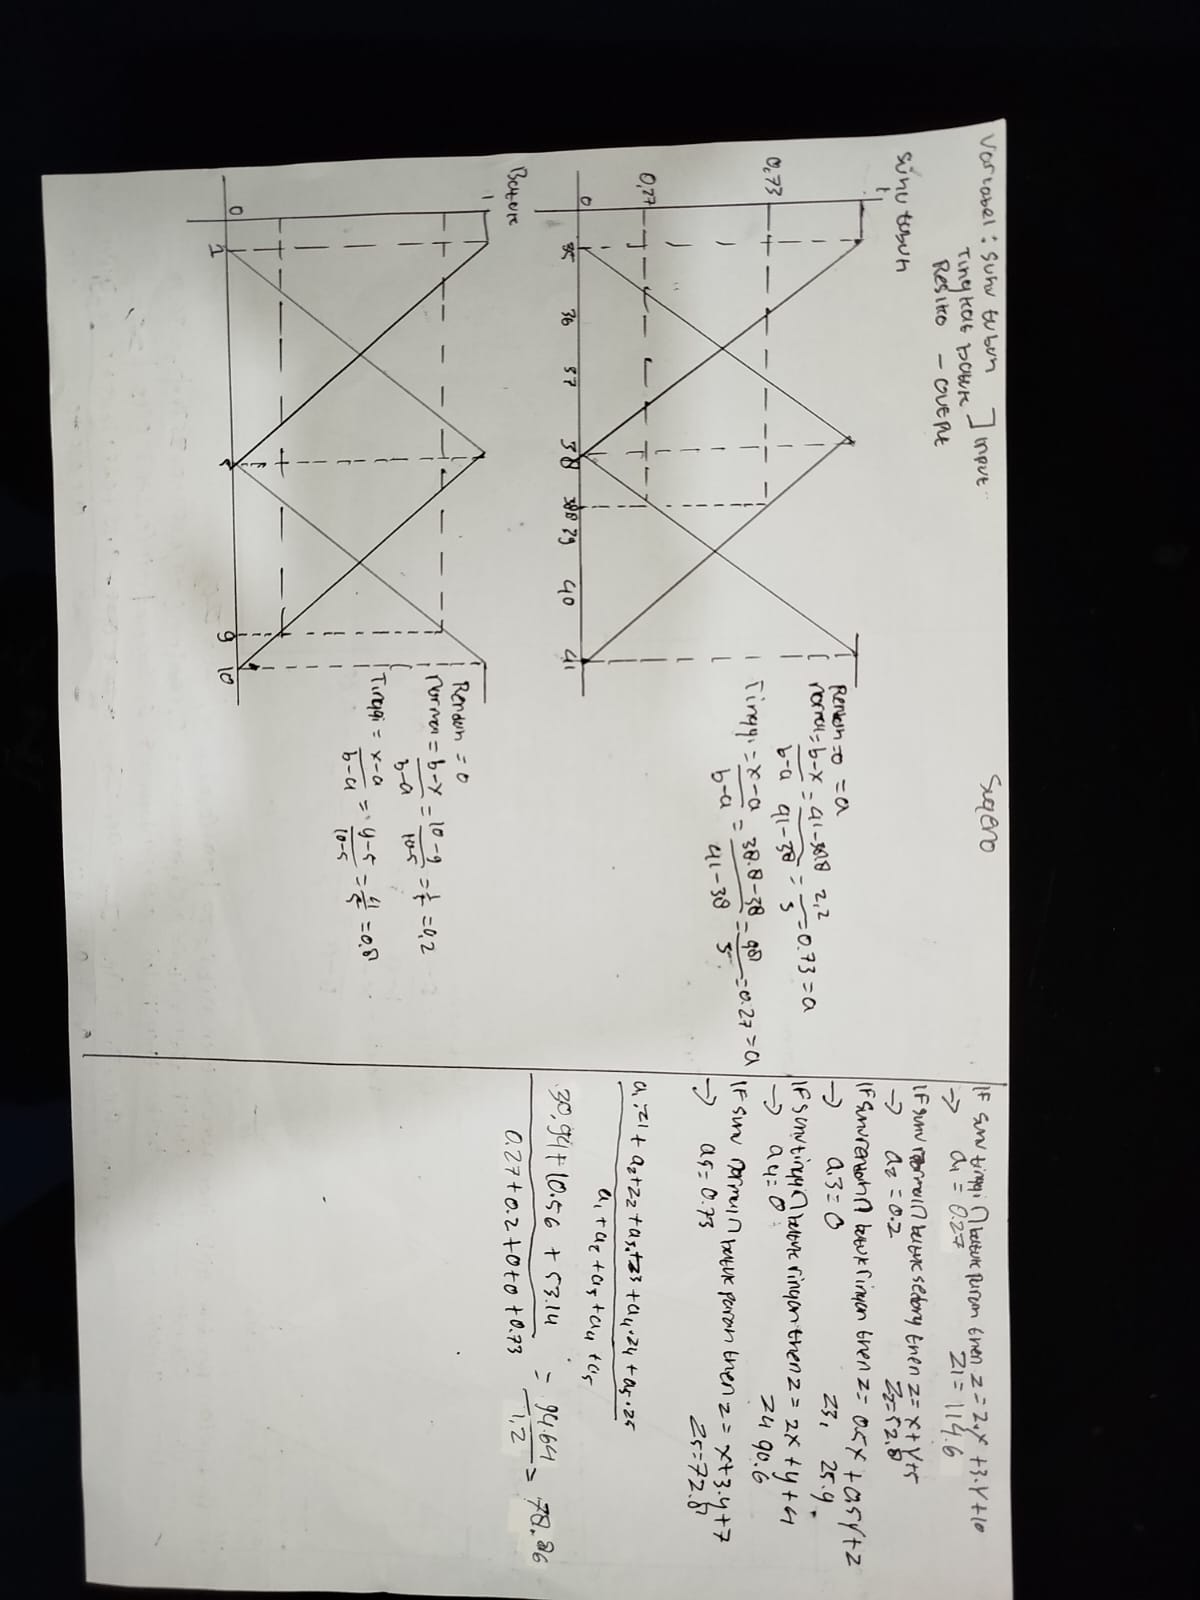 Variabel : Suhu tubuh
Tingkat batuk ] input
Resiko - output
Sugeno
Suhu tubuh
1
0,73
0,27
0
35 36 37 38 38.8 39 40 41
Rendah = 0 = a
normal = b-x / b-a = 41-38.8 / 41-38 = 2,2 / 3 = 0.73 = a
Tinggi = x-a / b-a = 38.8-38 / 41-38 = 0.27 = a
Batuk
1
0
1 5 9 10
Rendah = 0
Normal = b-x / b-a = 10-9 / 10-5 = 1/5 = 0,2
Tinggi = x-a / b-a = 9-5 / 10-5 = 4/5 = 0.8
IF suhu tinggi ∩ batuk parah then z = 2.x + 3.y + 10
→ a1 = 0.27 z1 = 114.6
IF suhu normal ∩ batuk sedang then z = x + y + 5
→ a2 = 0.2 z2 = 52.8
IF suhu rendah ∩ batuk ringan then z = 0.5x + 0.5y + 2
→ a3 = 0 z3, 25.9
IF suhu tinggi ∩ batuk ringan then z = 2x + y + 4
→ a4 = 0 z4 90.6
IF suhu normal ∩ batuk parah then z = x + 3.y + 7
→ a5 = 0.73 z5 = 72.8
a1.z1 + a2+z2 + a3.+z3 + a4.z4 + a5.z5
a1 + a2 + a3 + a4 + a5
30.94 + 10.56 + 53.14 = 94.64 = 78.86
0.27 + 0.2 + 0 + 0 + 0.73 1,2